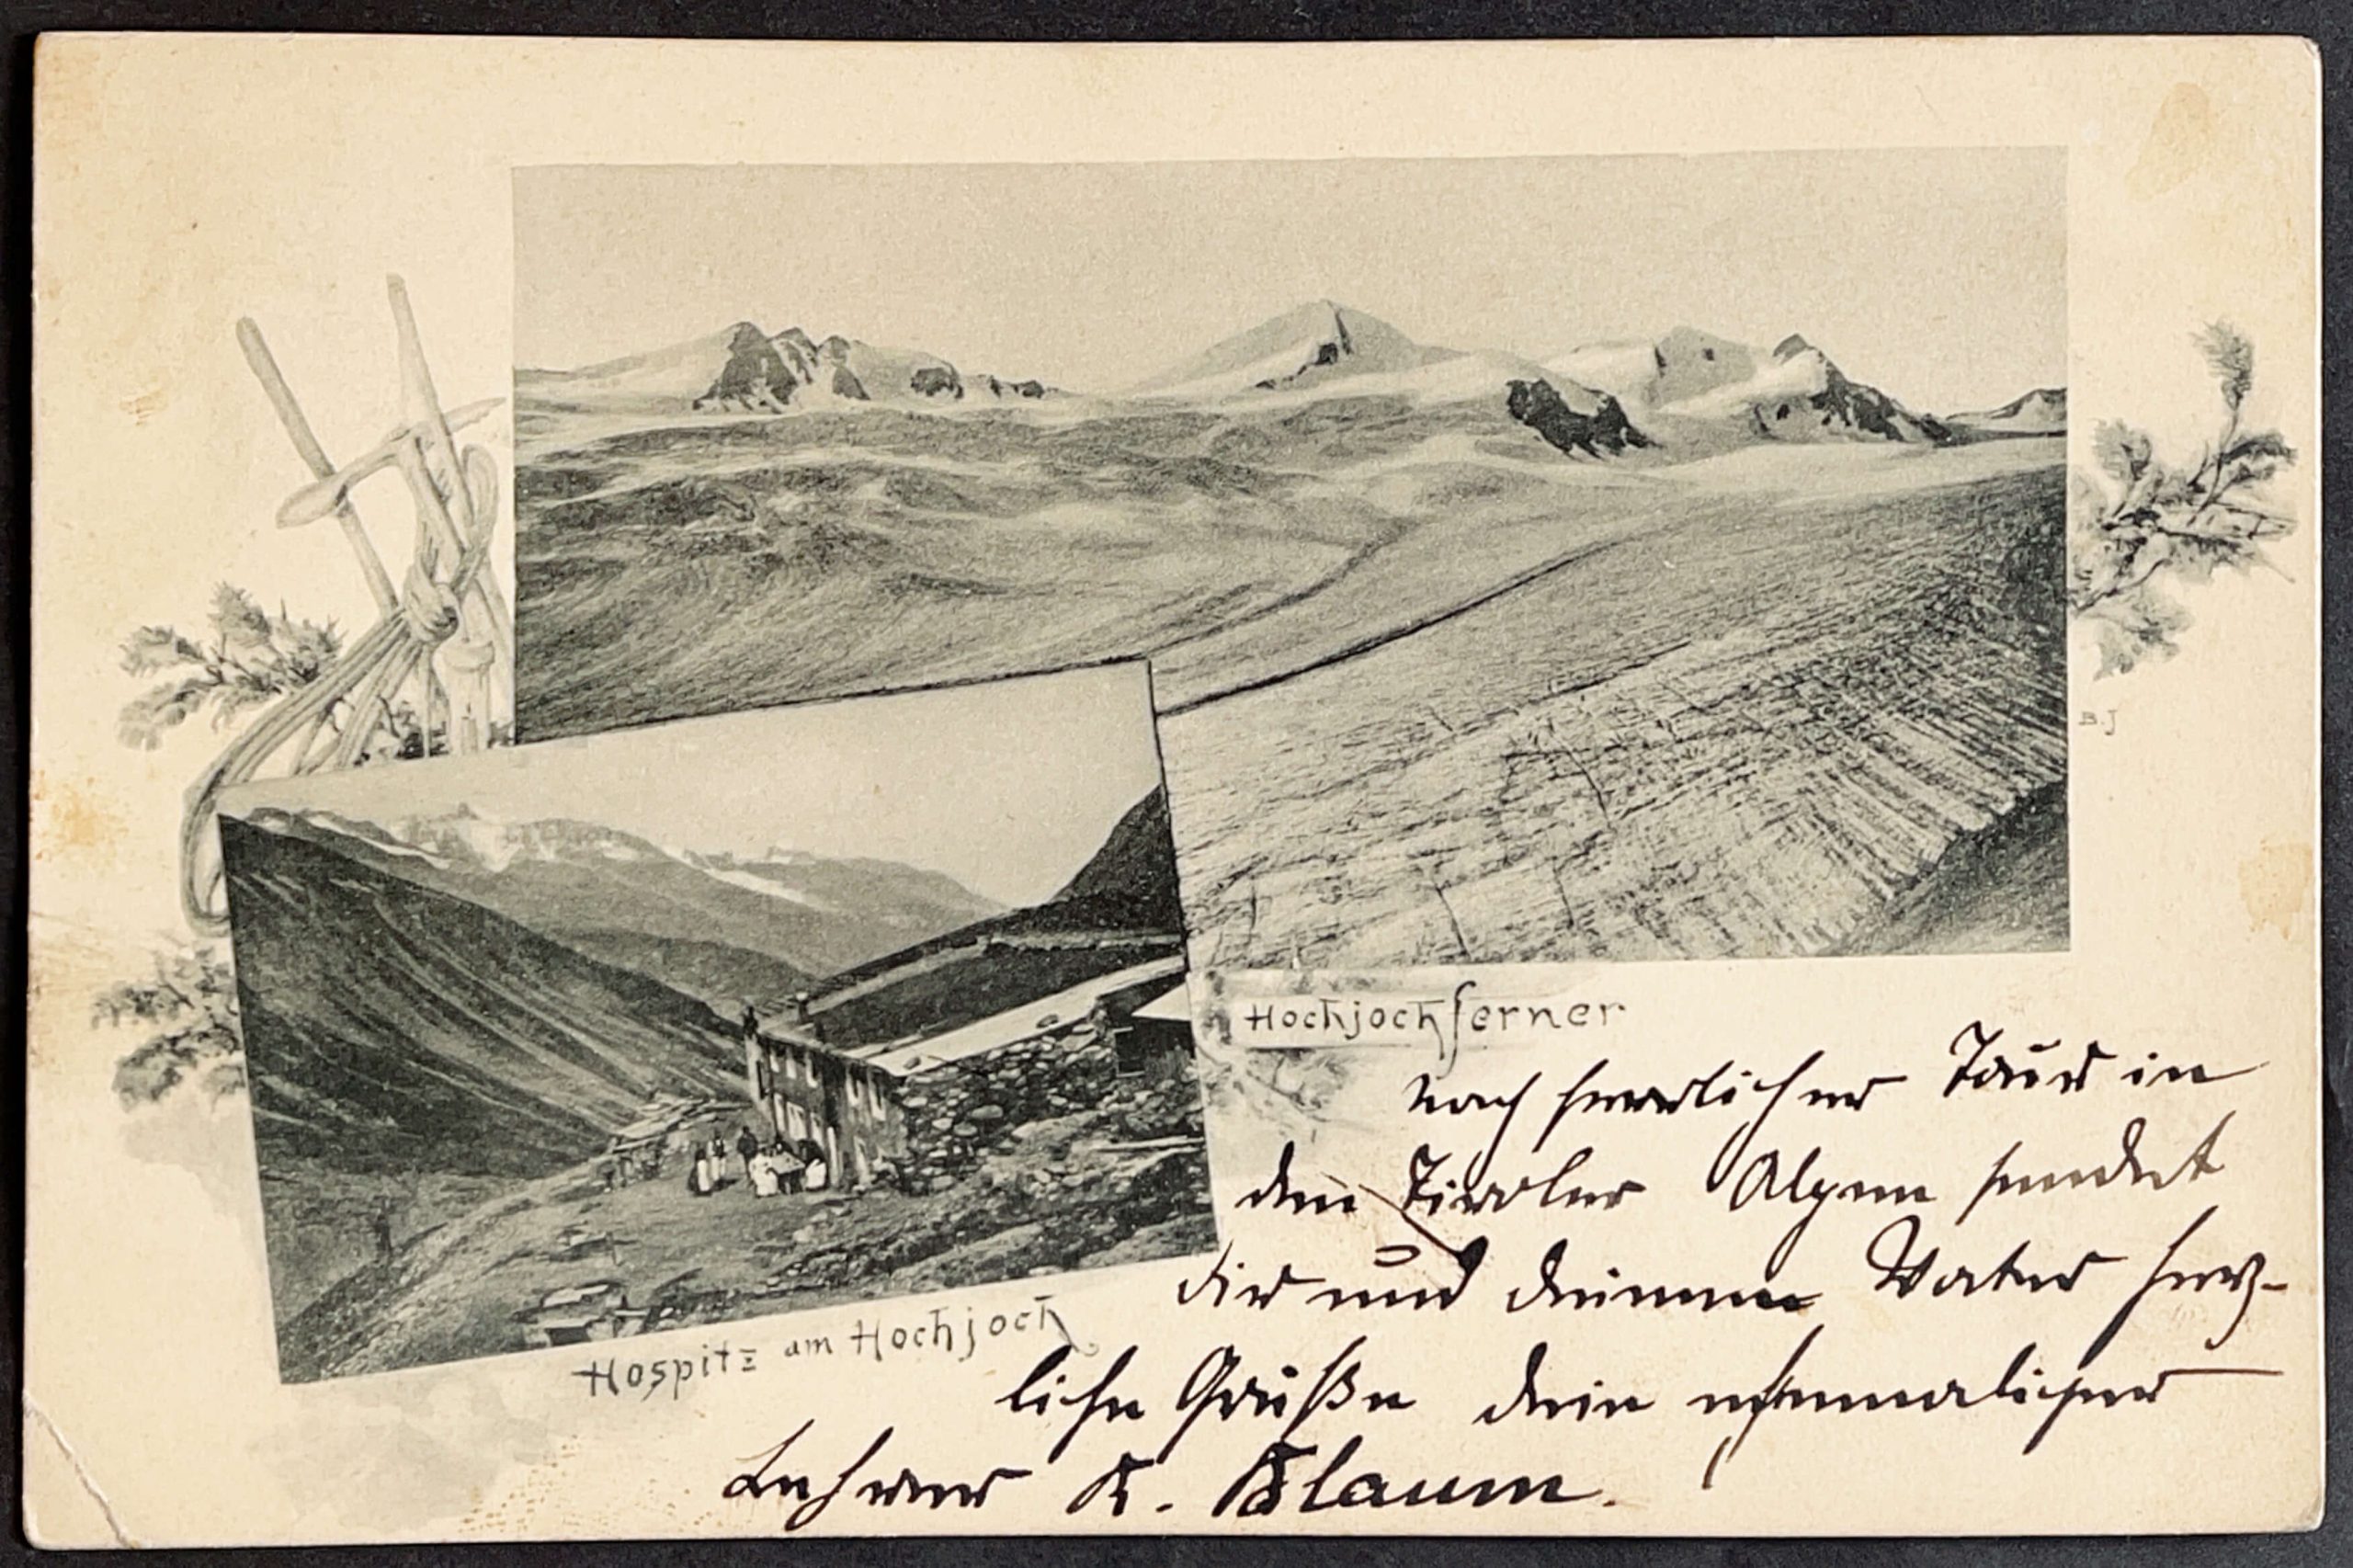 B.J
Hochjochferner
Hospitz am Hochjoch
Nach herrlicher Tour in
den Tiroler Alpen sendet
dir und deinem Vater herz-
liche Grüße dein ehemaliger
Lehrer K. Blaum.